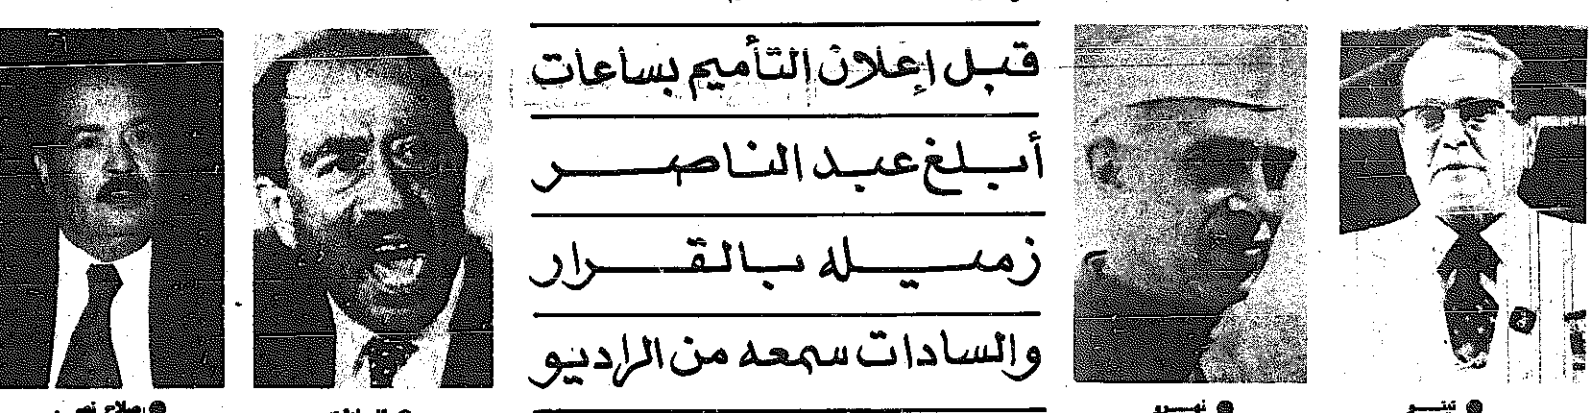 قبل إعلان التأميم بساعات
أبلغ عبد الناصر
زميله بالقرار
والسادات سمعه من الراديو
تيتو
نهرو
صلاح نصر